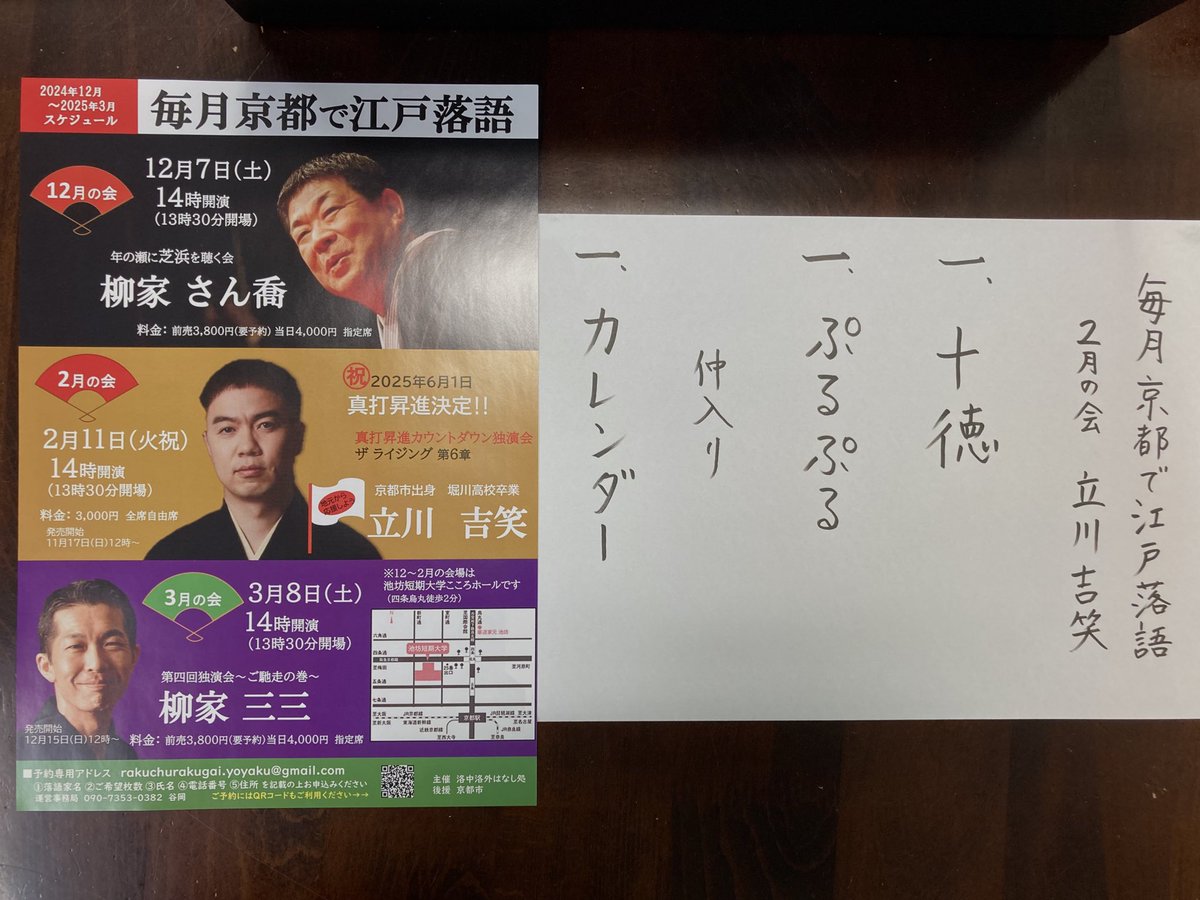 2024年12月
～2025年3月
スケジュール
毎月京都で江戸落語
12月の会
12月7日(土)
14時開演
(13時30分開場)
年の瀬に芝浜を聴く会
柳家 さん喬
料金： 前売3,800円(要予約) 当日4,000円 指定席
2月の会
2月11日(火祝)
14時開演
(13時30分開場)
料金： 3,000円 全席自由席
発売開始
11月17日(日)12時～
祝 2025年6月1日
真打昇進決定!!
真打昇進カウントダウン独演会
ザ ライジング 第6章
地元から
応援しよう
京都市出身 堀川高校卒業
立川 吉笑
3月の会
3月8日(土)
14時開演
(13時30分開場)
第四回独演会～ご馳走の巻～
柳家 三三
発売開始
12月15日(日)12時～
料金： 前売3,800円(要予約)当日4,000円 指定席
※12～2月の会場は
池坊短期大学こころホールです
(四条烏丸徒歩2分)
六角通
四条通
五条通
七条通
池坊短期大学
至梅田
至河原町
至大阪
至新大阪
JR京都線
東海道新幹線
京都駅
JR琵琶湖線
至大津
至名古屋
近鉄京都線
至西大寺
JR奈良線
至奈良
■予約専用アドレス rakuchurakugai.yoyaku@gmail.com
①落語家名 ②ご希望枚数 ③氏名 ④電話番号 ⑤住所 を記載の上お申込みください
運営事務局 090-7353-0382 谷岡 ご予約にはQRコードもご利用ください→→
主催 洛中洛外はなし処
後援 京都市
毎月京都で江戸落語
2月の会 立川吉笑
一、十徳
一、ぷるぷる
仲入り
一、カレンダー